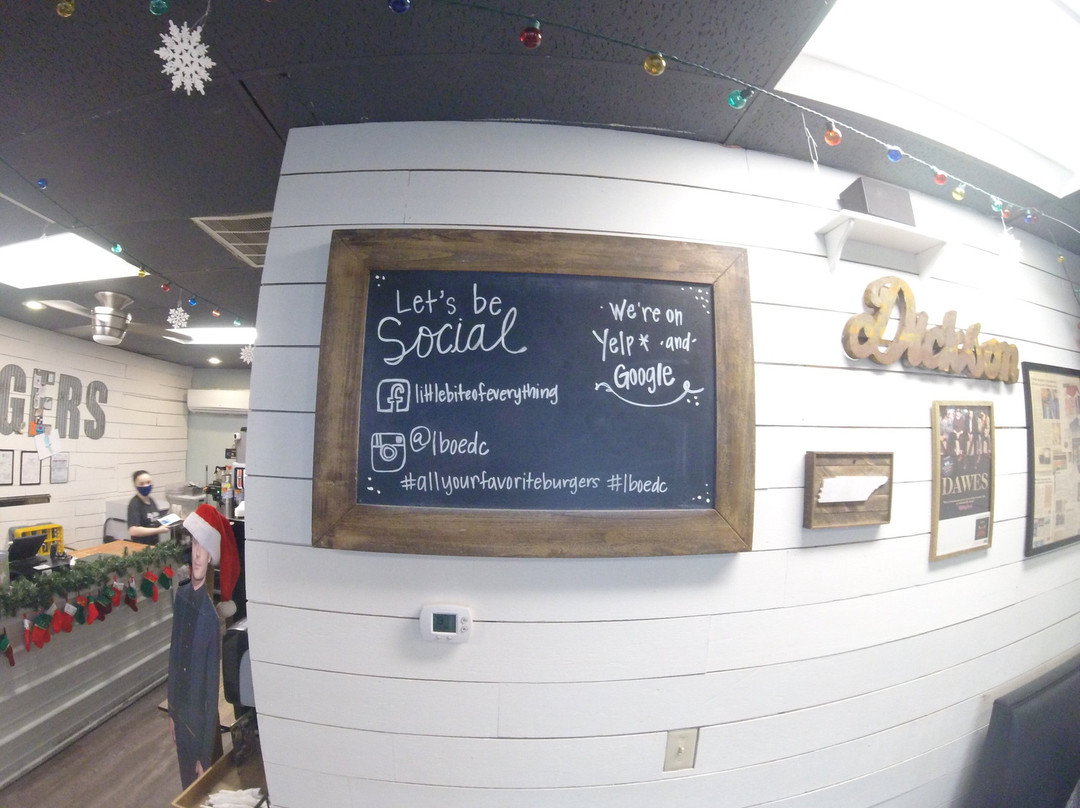 Let's be
Social
littlebiteofeverything
@lboedc
#allyourfavoriteburgers #lboedc
We're on
Yelp* -and-
Google
GERS
Dickson
DAWES